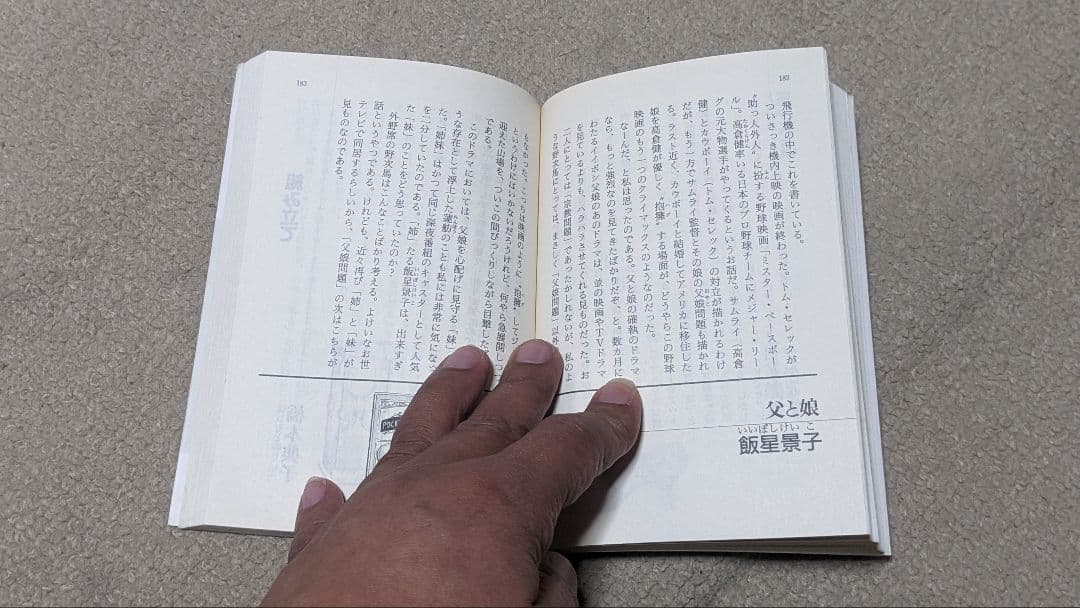 182
父と娘
いいぼしけいこ
飯星景子
飛行機の中でこれを書いている。
ついさっき機内上映の映画が終わった。トム・セレックが
“助っ人外人”に扮する野球映画「ミスター・ベースボー
ル」。高倉健率いる日本のプロ野球チームにメジャー・リー
グの元大物選手がやってくるというお話だ。サムライ(高倉
健)とカウボーイ(トム・セレック)の対立が描かれるわけ
だが、もう一方でサムライ監督とその娘の父娘問題も描かれ
る。ラスト近く、カウボーイと結婚してアメリカに移住した
娘を高倉健が優しく“抱擁”する場面が、どうやらこの野球
映画のもう一つのクライマックスのようなのだった。
なーんだ、と私は思ったのである。父と娘の確執のドラマ
なら、もっと強烈なのを見てきたばかりだぞ、と。数カ月に
わたるイイボシ父娘のあのドラマは、並の映画やTVドラマ
を見ているよりも、ハラハラさせてくれる見ものだった。お
二人にとっては「宗教問題」であったかしれないが、私のよ
うな野次馬にとっては、まさしく「父娘問題」以外
183
もなかった。こっちは映画のように“抱擁”してジ
というわけにはいかないだろうけれど、何やら急展開しつつ
迎えた山場を、ついこの間びっくりしながら目撃した
である。
このドラマにおいては、父娘を心配げに見守る「妹」
うな存在として浮上した蓮舫のことも私には非常に気になっ
た。「姉妹」はかつて同じ深夜番組のキャスターとして人気
を二分していたのである。「姉」たる飯星景子は、出来すぎ
た「妹」のことをどう思っていたのか?
外野席の野次馬はこんなことばかり考える。よけいなお世
話というやつである。けれども、近々再び「姉」と「妹」が
テレビで同居するらしいから、「父娘問題」の次はこちらが
見ものなのである。